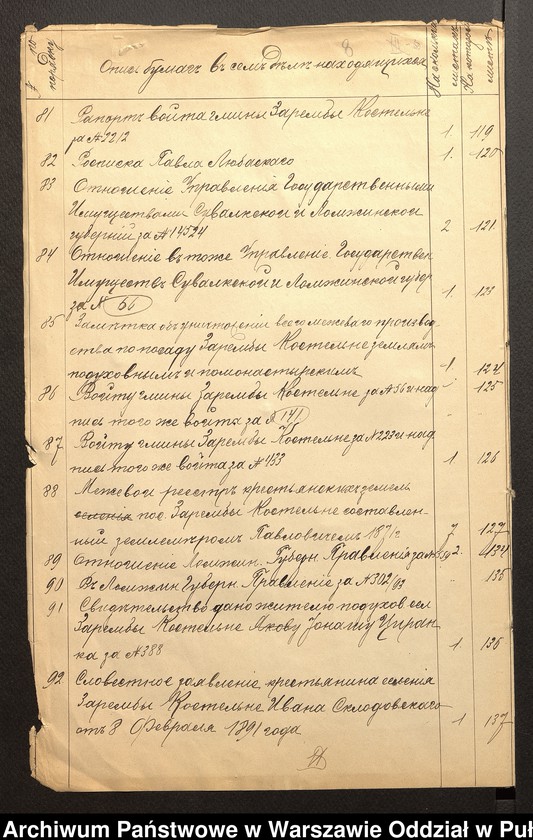 № по порядку
Опись бумагъ въ семъ дѣлѣ находящихся
8
На сколькихъ листахъ
На которыхъ листъ
81 Рапортъ войта гмины Зарембы Костельне
за № 3212 1. 119
82 Росписка Павла 1. 120
83 Отношеніе Управленія Государственными
Имуществами Сувалкской и Ломжинской
губерній за № 14524 2 121
84 Отношеніе въ тоже Управленіе Государствен.
Имуществъ Сувалкской и Ломжинской губер
за № 56 1. 123
85 Замѣтка объ уничтоженіи всего межеваго производ-
ства по посаду Зарембы Костельне землямъ
подуховнымъ и помонастырскимъ 1 124
86 Войту гмины Зарембы Костельне за № 36 и над " 125
пись того же войта за № 141
87 Войту гмины Зарембы Костельне за № 223 и над
пись того же войта за № 433 1. 126
88 Межевой реестръ крестьянскихъ земель
селенія пос. Зарембы Костельне составлен-
ный землемѣромъ Павловичемъ 1871 г. 7 127
89 Отношеніе Ломжин. Губерн. Правленія за № 2. 134
90 Въ Ломжин Губерн. Правленіе за № 302/93 " 135
91 Свидѣтельство дано жителю подухов. сел
Зарембы Костельне Якову Цитрин
ка за № 388 1. 136
92 Словестное заявленіе крестьянина селенія
Зарембы Костельне Ивана Склодовскаго
отъ 8 Февраля 1891 года 1 137
Archiwum Państwowe w Warszawie Oddział w Puł